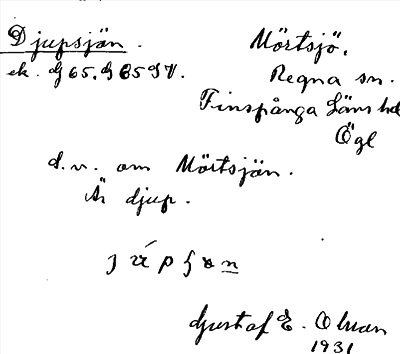 Djupsjön. Mörtsjö.
ek. G65. G85 SV. Regna sn.
Finspånga Läns hd
Ögl
S.v. om Mörtsjön.
Är djup.
Gustaf E. Olman
1931